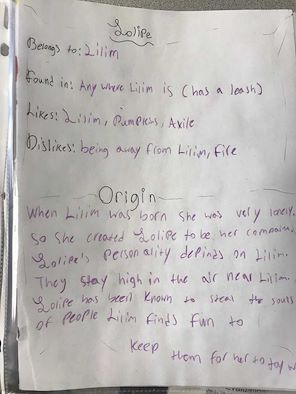 Lolipe
Belongs to: Lilim
Found in: Any where Lilim is (has a leash)
Likes: Lilim, Pumpkins, Axile
Dislikes: being away from Lilim, Fire
Origin
When Lilim was born she was very lonely.
So she created Lolipe to be her companion.
Lolipe's personality depinds on Lilim.
They stay high in the air near Lilim.
Lolipe has been known to steal the souls
of people Lilim finds fun to
keep
them for her to toy w